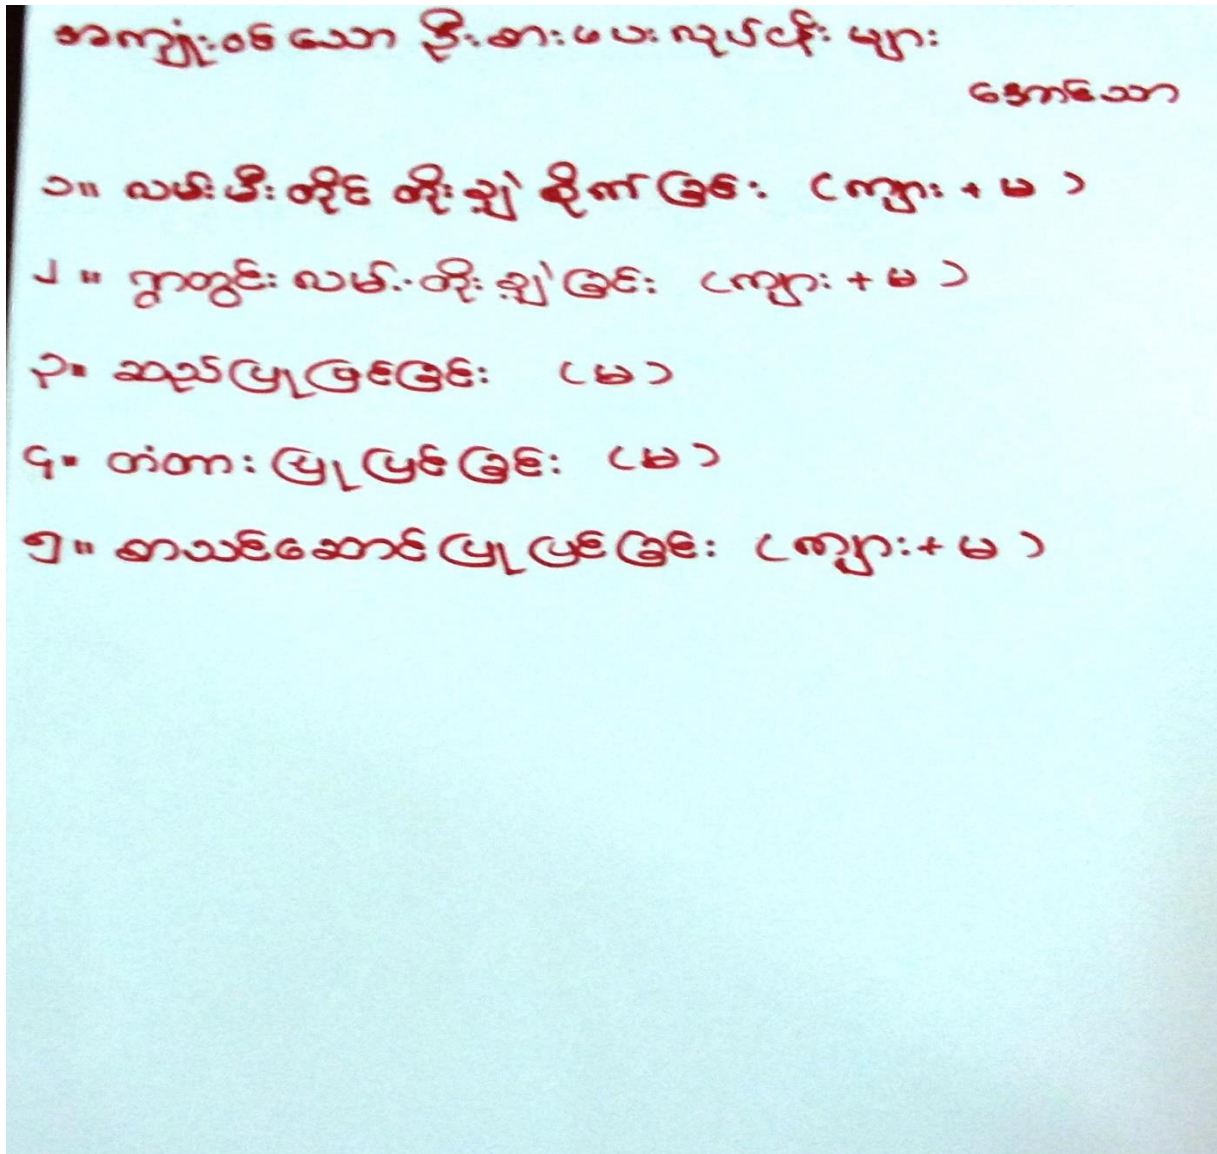 အကျုံးဝင်သော ဦးစားပေးလုပ်ငန်းများ
အောင်သာ
၁။ လမ်းမီးတိုင် တိုးချဲ့ စိုက်ခြင်း (ကျား + မ)
၂။ ရွာတွင်းလမ်းတိုးချဲ့ခြင်း (ကျား + မ)
၃။ ဆည်ပြုပြင်ခြင်း (မ)
၄။ တံတားပြုပြင်ခြင်း (မ)
၅။ စာသင်ဆောင်ပြုပြင်ခြင်း (ကျား + မ)